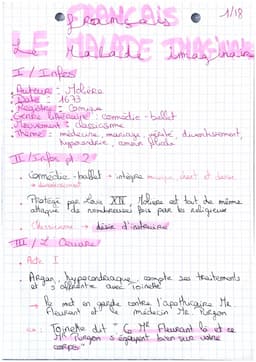 FRANÇAIS
français 1/18
LE MALADE IMAGINAIRE
Le Malade imaginaire
I / Infos
Auteur : Molière
Date : 1673
Registre : Comique
Genre littéraire : comédie-ballet
Mouvement : classicisme
Thème : médecine, mariage, vérité, divertissement,
hypocondrie, amour filiale
II / Infos pt 2
Comédie-ballet → intègre musique, chant et danse
→ divertissement
Protégé par Louis XIV, Molière est tout de même
attaqué de nombreuses fois par les religieux
Classicisme → désir d'instruire
III / L'Oeuvre
Acte I
Argan, hypocondriaque, compte ses traitements
et s' avec Toinette
le met en garde contre l'apothicaire Mr
Fleurant et le médecin Mr. Purgon
ex : Toinette dit "Ce Mr Fleurant là et ce
Mr Purgon s'égayent bien sur votre
corps"